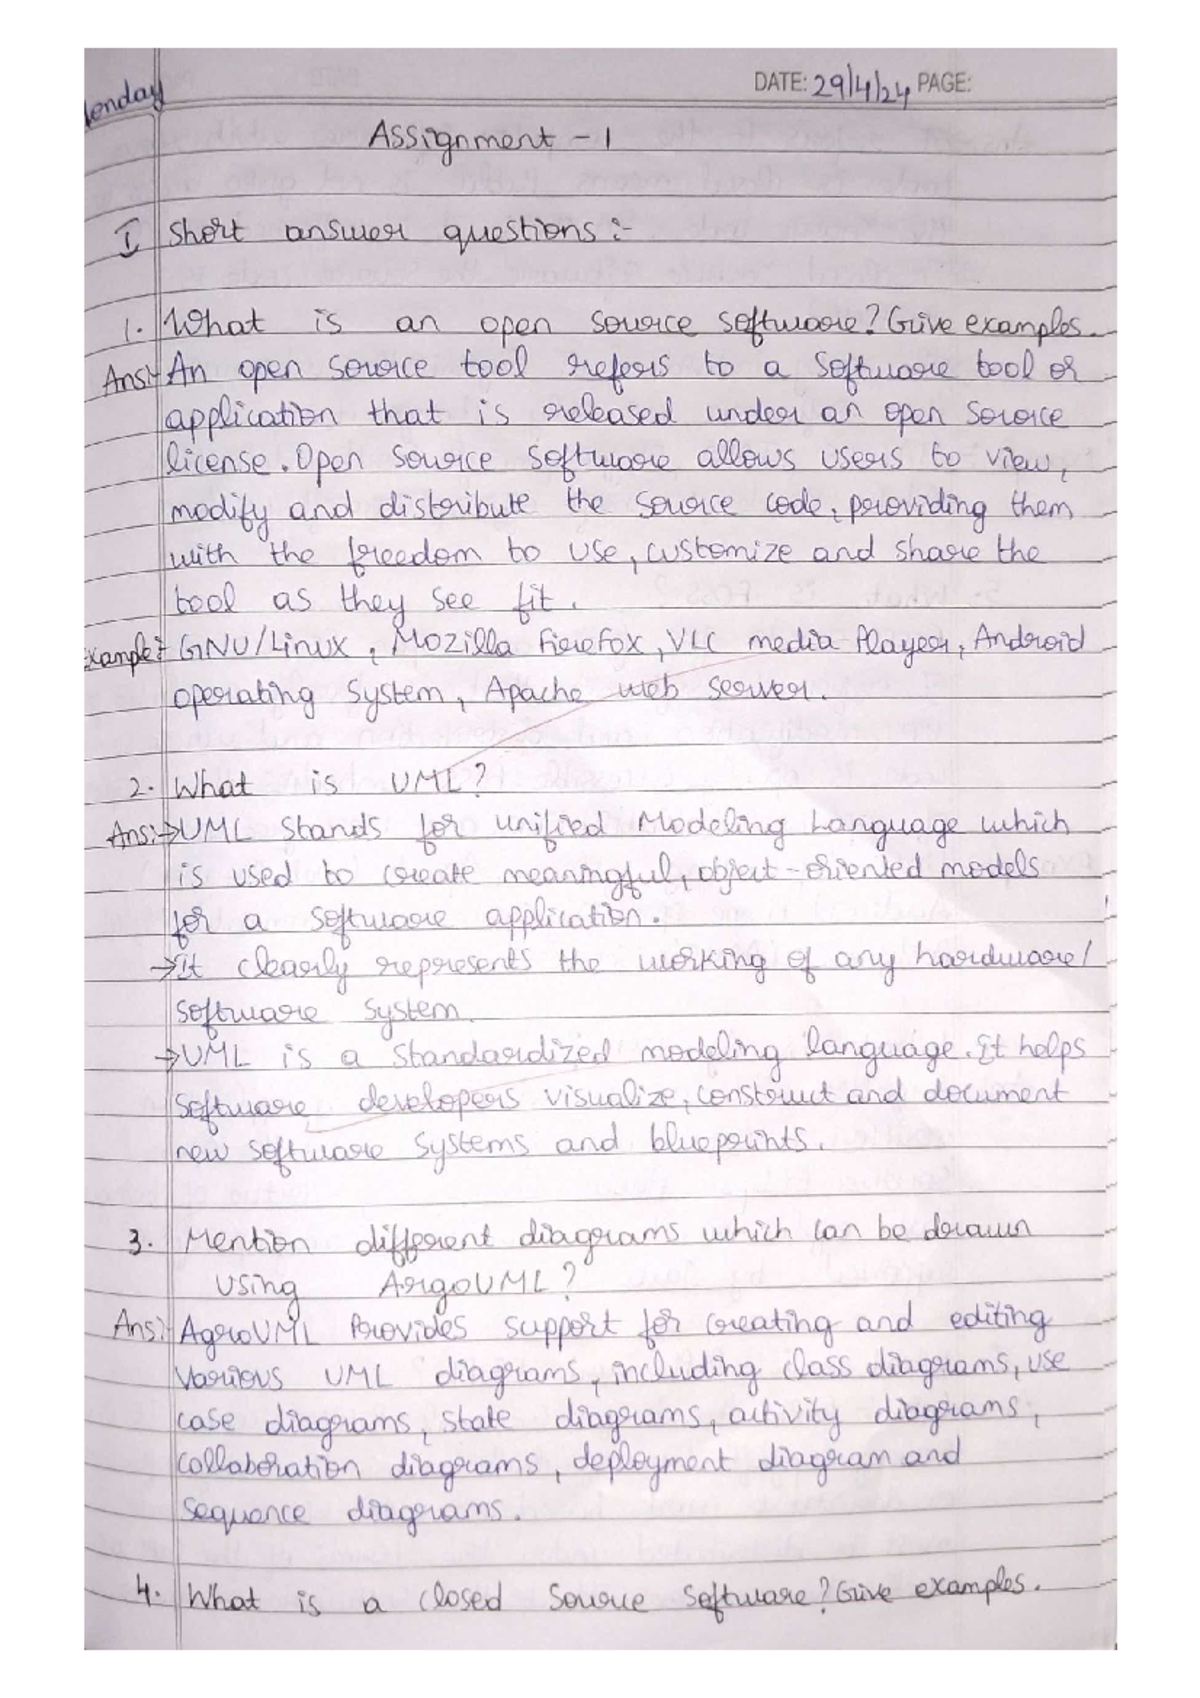 DATE: 29/4/24 PAGE:
Monday
Assignment - 1
I Short answer questions :-
1. What is an open source software? Give examples.
Ans:- An open source tool refers to a software tool or
application that is released under an open source
license. Open source software allows users to view,
modify and distribute the source code, providing them
with the freedom to use, customize and share the
tool as they see fit.
Example:- GNU/Linux, Mozilla Firefox, VLC media Player, Android
operating system, Apache web server.
2. What is UML?
Ans:→ UML stands for unified Modeling Language which
is used to create meaningful, object-oriented models
for a software application.
→ it clearly represents the working of any hardware/
software system.
→ UML is a standardized modeling language. It helps
software developers visualize, construct and document
new software systems and blueprints.
3. Mention different diagrams which can be drawn
using ArgoUML?
Ans:- AgroUML Provides support for creating and editing
various UML diagrams, including class diagrams, use
case diagrams, state diagrams, activity diagrams,
collaboration diagrams, deployment diagram and
sequence diagrams.
4. What is a closed source software? Give examples.